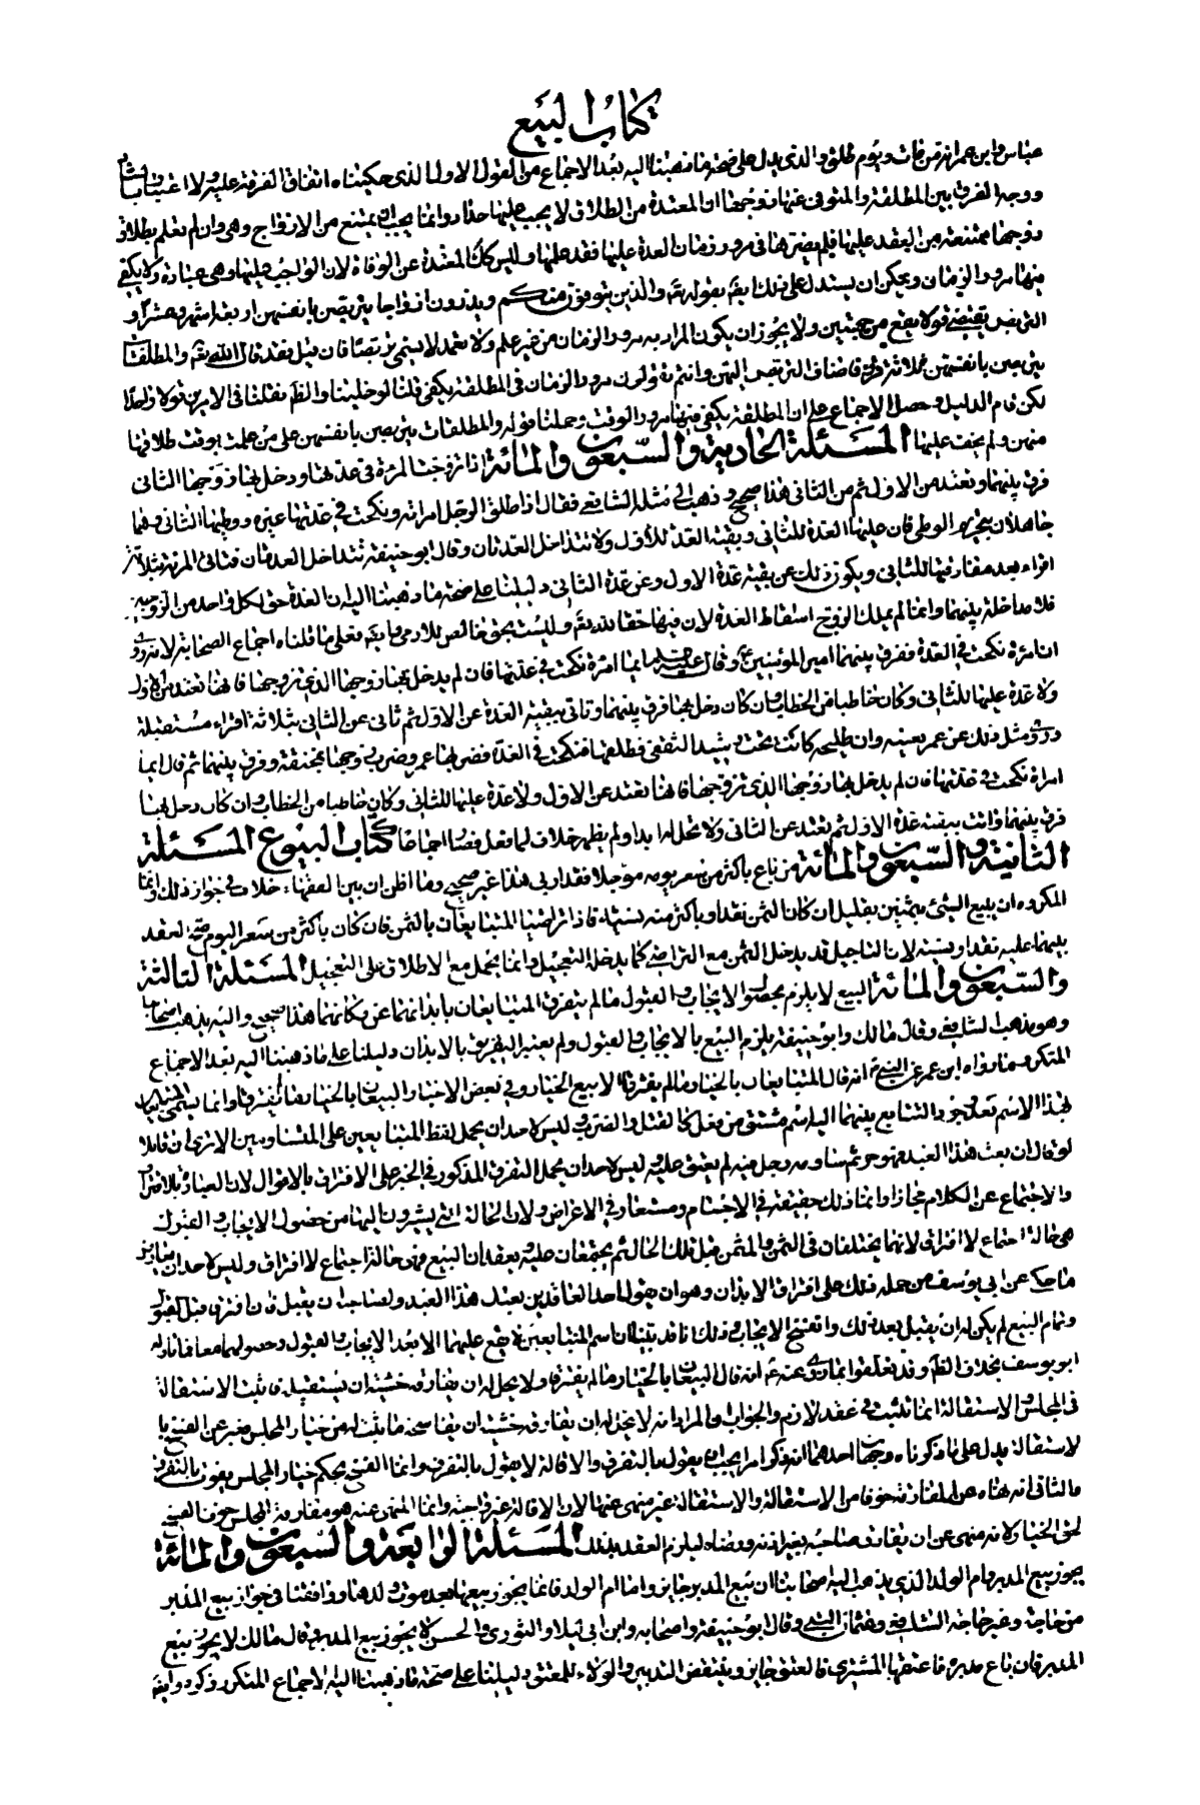 كتاب البيع
عباس وابن عمر انه من مات ويوم طلق والذي يدل على صحة ما ذهبنا اليه بعد الاجماع من القول الاول الذي حكيناه اتفاق الفرقة عليه ولا اعتبار
ووجه الفرق بين المطلقة والمتوفى عنها زوجها ان المعتدة من الطلاق لا يجب عليها حداد وانما يجب ان يمتنع من الازواج وهي وان لم تعلم بطلاق
زوجها ممتنعة من العقد عليها فلم يضرها في مرور زمان العدة عليها فقد علمها وليس كك المعتدة عن الوفاة لان الواجب عليها وهي عبادة ولا يكفي
فيها مرور الزمان ويمكن ان يستدل على ذلك ايضا بقوله تعالى والذين يتوفون منكم ويذرون ازواجا يتربصن بانفسهن اربعة اشهر وعشرا و
التربص يقتضي قولا يقع من جهتهن ولا يجوز ان يكون المراد به مرور الزمان من غير علم ولا تعمد لا يسمى تربصا فان قيل فقد قال الله تعالى والمطلقات
يتربصن بانفسهن ثلاثة قروء فاضاف التربص اليهن وانتم تقولون مرور الزمان في المطلقة يكفي قلنا لو خلينا والظاهر لقلنا في الامرين قولا واحدا
لكن قام الدليل وحصل الاجماع على ان المطلقة يكفي فيها مرور الوقت وحملنا قوله والمطلقات يتربصن بانفسهن على من علمت بوقت طلاقها
منهن ولم يخف عليها المسئلة الحادية والسبعون والمائة اذا تزوجت المرءة في عدتها ودخل بها زوجها الثاني
فرق بينهما وتعتد من الاول ثم من الثاني هذا صحيح وذهب الى مثله الشافعي فقال اذا طلق الرجل امراته ونكحت في عدتها غيره ووطيها الثاني وهما
جاهلان بتحريم الوطي فان عليها العدة للثاني وبقية العدة للأول ولا تتداخل العدتان وقال ابو حنيفة تتداخل العدتان فتاتي المرئة بثلاثة
اقراء بعد مفارقتها للثاني ويكون ذلك عن بقية عدة الاول وعن عدة الثاني دليلنا على صحة ما ذهبنا اليه ان العدة حق لكل واحد من الزوجين
فلا مداخلة بينهما وانما لم يملك الزوج اسقاط العدة لان فيها حقا لله تعالى وليست بحق خالص للادمي وايضا فعلى ما قلناه اجماع الصحابة لانه روي
ان امرئة نكحت في العدة ففرق بينهما امير المؤمنين وقال ايما امرئة نكحت في عدتها فان لم يدخل بها زوجها الذي تزوجها فانها تعتد من الاول
ولا عدة عليها للثاني وكان خاطبا من الخطاب وان كان دخل بها فرق بينهما وتاتي ببقية العدة عن الاول ثم تاتي عن الثاني بثلاثة اقراء مستقبلة
وروي مثل ذلك عن عمر بعينه وان طليحة كانت تحت رشيد الثقفي فطلقها فنكحت في العدة فضربها عمر وضرب زوجها بمخفقة وفرق بينهما ثم قال ايما
امراة نكحت في عدتها فان لم يدخل بها زوجها الذي تزوجها فانها تعتد عن الاول ولا عدة عليها للثاني وكان خاطبا من الخطاب وان كان دخل بها
فرق بينهما واتت ببقية عدة الاول ثم تعتد عن الثاني ولا تحل له ابدا ولم يظهر خلاف لما فعل فصار اجماعا كتاب البيوع المسئلة
الثانية والسبعون والمائة من باع باكثر من سعر يومه مؤجلا فقد اربى هذا غير صحيح وما اظن ان بين الفقهاء خلاف في جواز ذلك وانما
المكروه ان يبيع الشيء بثمنين بقليل ان كان الثمن نقدا وباكثر منه نسيئة فاذا تراضيا المتبايعان بالثمن فان كان باكثر من سعر اليوم صح العقد
بينهما عليه نقدا ونسيئة لان التاجيل قد يدخل الثمن مع التراضي كما يدخله التعجيل وانما يحمل مع الاطلاق على التعجيل المسئلة الثالثة
والسبعون والمائة البيع لا يلزم بحصول الايجاب والقبول ما لم يتفرق المتبايعان بابدانهما عن مكانهما هذا صحيح واليه يذهب اصحابنا
وهو مذهب الشافعي وقال مالك وابو حنيفة يلزم البيع بالايجاب والقبول ولم يعتبر التفريق بالابدان دليلنا على ما ذهبنا اليه بعد الاجماع
المتكرر ما رواه ابن عمر عن النبي انه قال المتبايعان بالخيار ما لم يفترقا الا بيع الخيار وفي بعض الاخبار البيعان بالخيار ما لم يفترقا وانما يسمى المتبايعان
بهذا الاسم بعد وجود التبايع بينهما اليه اسم مشتق من فعل كالقتل والضرب وليس لاحد ان يحمل لفظ المتبايعين على المتساومين الا ترى ان قائلا
لو قال ان بعت هذا العبد فهو حر ثم ساومه رجل فيه لم يعتق عليه وليس لاحد ان يحمل التفرق المذكور في الخبر على الافتراق بالاقوال لان العبارة بلافتراق
والاجتماع عن الكلام مجازا وانما ذلك حقيقة في الاجسام ومستعار في الاعراض ولان الحالة التي يشيرون اليها من حصول الايجاب والقبول
هي حالة اجتماع لا افتراق لانهما يختلفان في الثمن والمثمن قبل تلك الحال ثم يجتمعان عليه ويعقدان البيع فهي حالة اجتماع لا افتراق وليس لاحد ان
ما حكي عن ابي يوسف من حمله ذلك على افتراق الابدان وهو ان يقول احد العاقدين بعتك هذا العبد ولصاحبه ان يقبل فان افترق قبل القبول
وتمام البيع لم يكن له ان يقبل بعد ذلك وانفسخ الايجاب وذلك انا قد بينا ان اسم المتبايعين لا يقع عليهما الا بعد الايجاب والقبول وحصولهما معا فما تاوله
ابو يوسف بخلاف الظاهر وقد تعلقوا بما روي عنه انه قال البيعان بالخيار ما لم يفترقا ولا يحل له ان يفارقه خشية ان يستقيله فاثبت الاستقالة
في المجلس والاستقالة انما تثبت في عقد لازم والجواب والمراد انه لا يحل له ان يفارقه خشية ان يفاسخه ما يثبت له من خيار المجلس فعبر عن الفسخ با
لاستقالة يدل على ما ذكرناه وجهان احدهما انه ذكر امرا يجب ان يفوت بالتفرق والاقالة لا يفوت بالتفرق وانما الفسخ بحكم خيار المجلس يفوت بالتفرق
والثاني انه نهاه عن المفارقة خوفا من الاستقالة والاستقالة غير منهي عنها لان الاقالة غير واجبة وانما المنهي عنه هو مفارقة المجلس خوف الفسخ
لحق الخيار لانه منهي عن ان يفارق صاحبه بغير اذنه ورضاه ليلزم العقد بذلك المسئلة الرابعة والسبعون والمائة
يجوز بيع المدبر وام الولد الذي يذهب اليه اصحابنا ان بيع المدبر جايز واما ام الولد فانما يجوز بيعها بعد موت ولدها ووافقنا في جواز بيع المدبر
من حاجة وغير حاجة الشافعي وعثمان البتي وقال ابو حنيفة واصحابه وابن ابي ليلا والثوري والحسن لا يجوز بيع المدبر وقال مالك لا يجوز بيع
المدبر فان باع مدبره فاعتقها المشتري فالعتق جايز وينتقض التدبير والولاء للمعتق دليلنا على صحة ما ذهبنا اليه الاجماع المتكرر ذكره وايضا